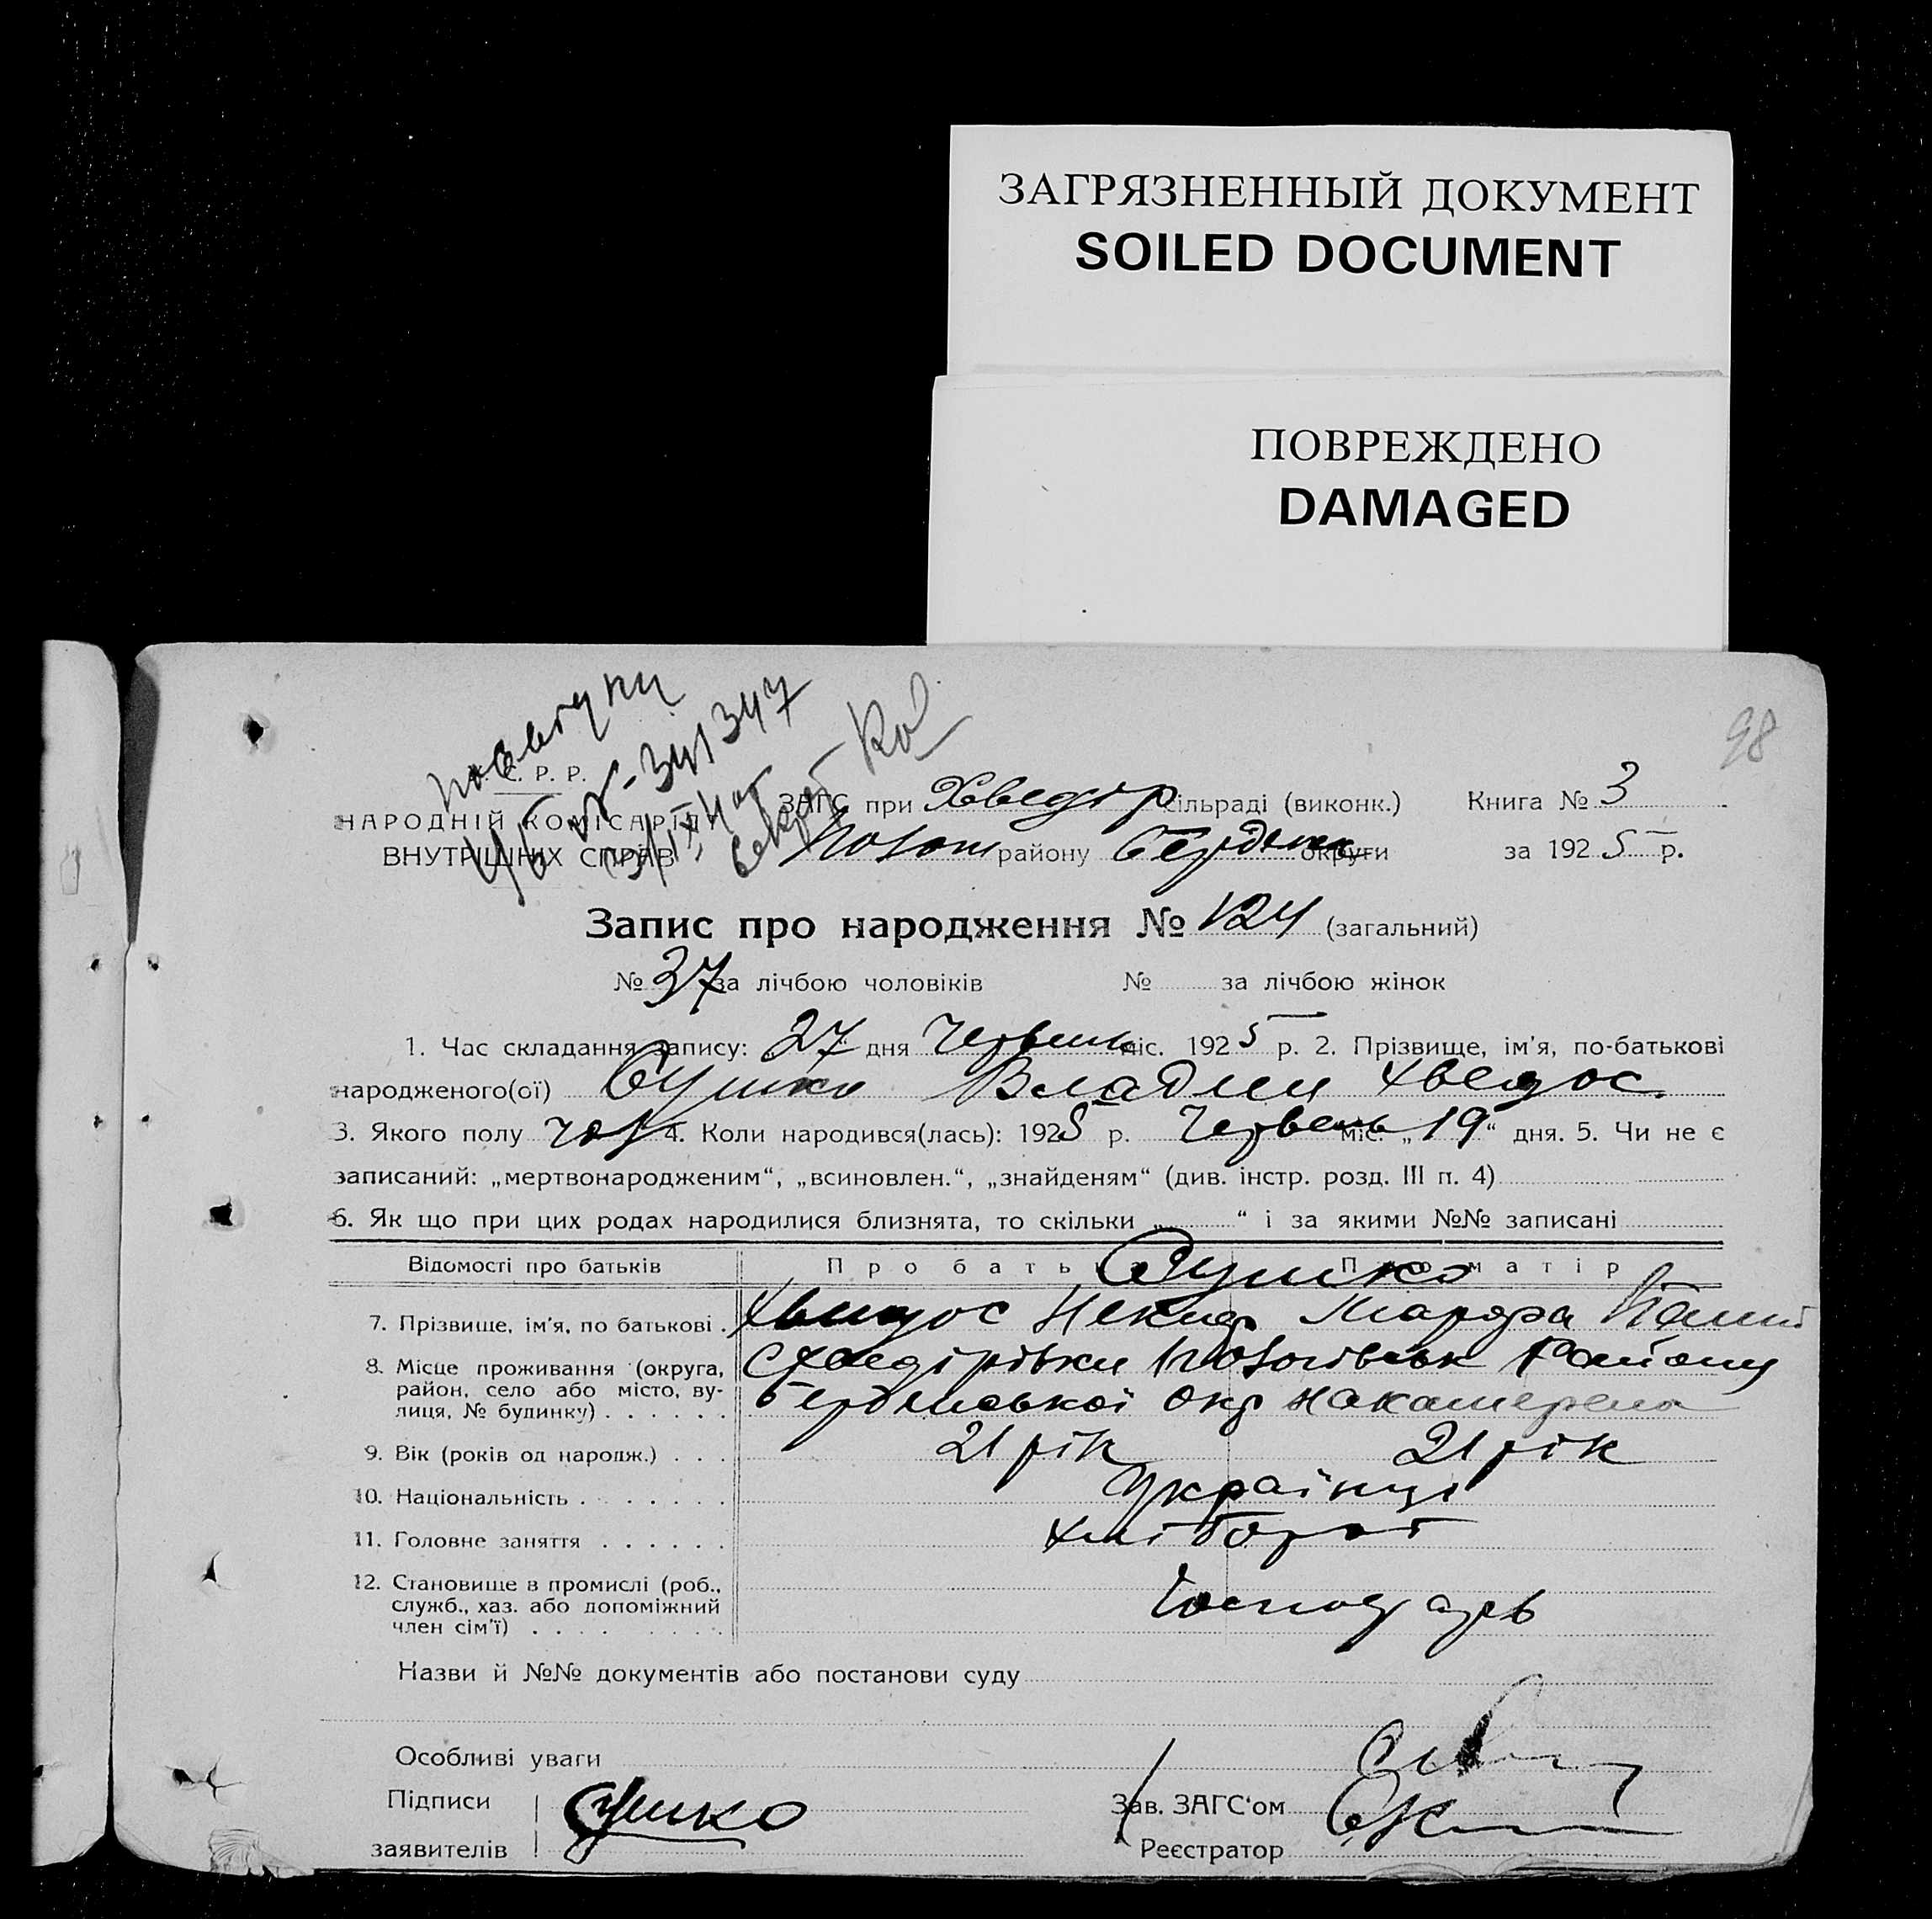 ЗАГРЯЗНЕННЫЙ ДОКУМЕНТ
SOILED DOCUMENT
ПОВРЕЖДЕНО
DAMAGED
98
С. Р. Р.
НАРОДНІЙ КОМІСАРІЯТ
ВНУТРІШНІХ СПРАВ
ЗАГС при Хведір сільраді (виконк.) Книга № 3
району округи за 1925 р.
Запис про народження № 124 (загальний)
№ 37 за лічбою чоловіків № за лічбою жінок
1. Час складання запису: „27“ дня Червень міс. 1925 р. 2. Прізвище, ім'я, по-батькові
народженого(ої) Сушко Владим Хведос.
3. Якого полу чол 4. Коли народився(лась): 1925 р. Червень міс. „19“ дня. 5. Чи не є
записаний: „мертвонародженим“, „всиновлен.“, „знайденям“ (див. інстр. розд. III п. 4)
6. Як що при цих родах народилися близнята, то скільки „ “ і за якими №№ записані
Відомості про батьків Про батька Про матір
Сушко
7. Прізвище, ім'я, по батькові Хведос
8. Місце проживання (округа, район, село або місто, вулиця, № будинку) с Хведірівки Району
Окр
9. Вік (років од народж.) 21 рік 21 рік
10. Національність Українці
11. Головне заняття хлібороб
12. Становище в промислі (роб.,
служб., хаз. або допоміжний
член сім'ї) Господарь
Назви й №№ документів або постанови суду
Особливі уваги
Підписи Сушко Зав. ЗАГС'ом
заявителів Реєстратор